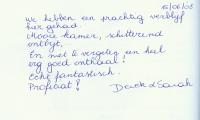 15/06/08
we hebben een prachtig verblijf
hier gehad.
Mooie kamer, schitterend
ontbijt,
En niet te vergeten een heel
erg goed onthaal!
Echt fantastisch.
Proficiat!
Derek & Sarah